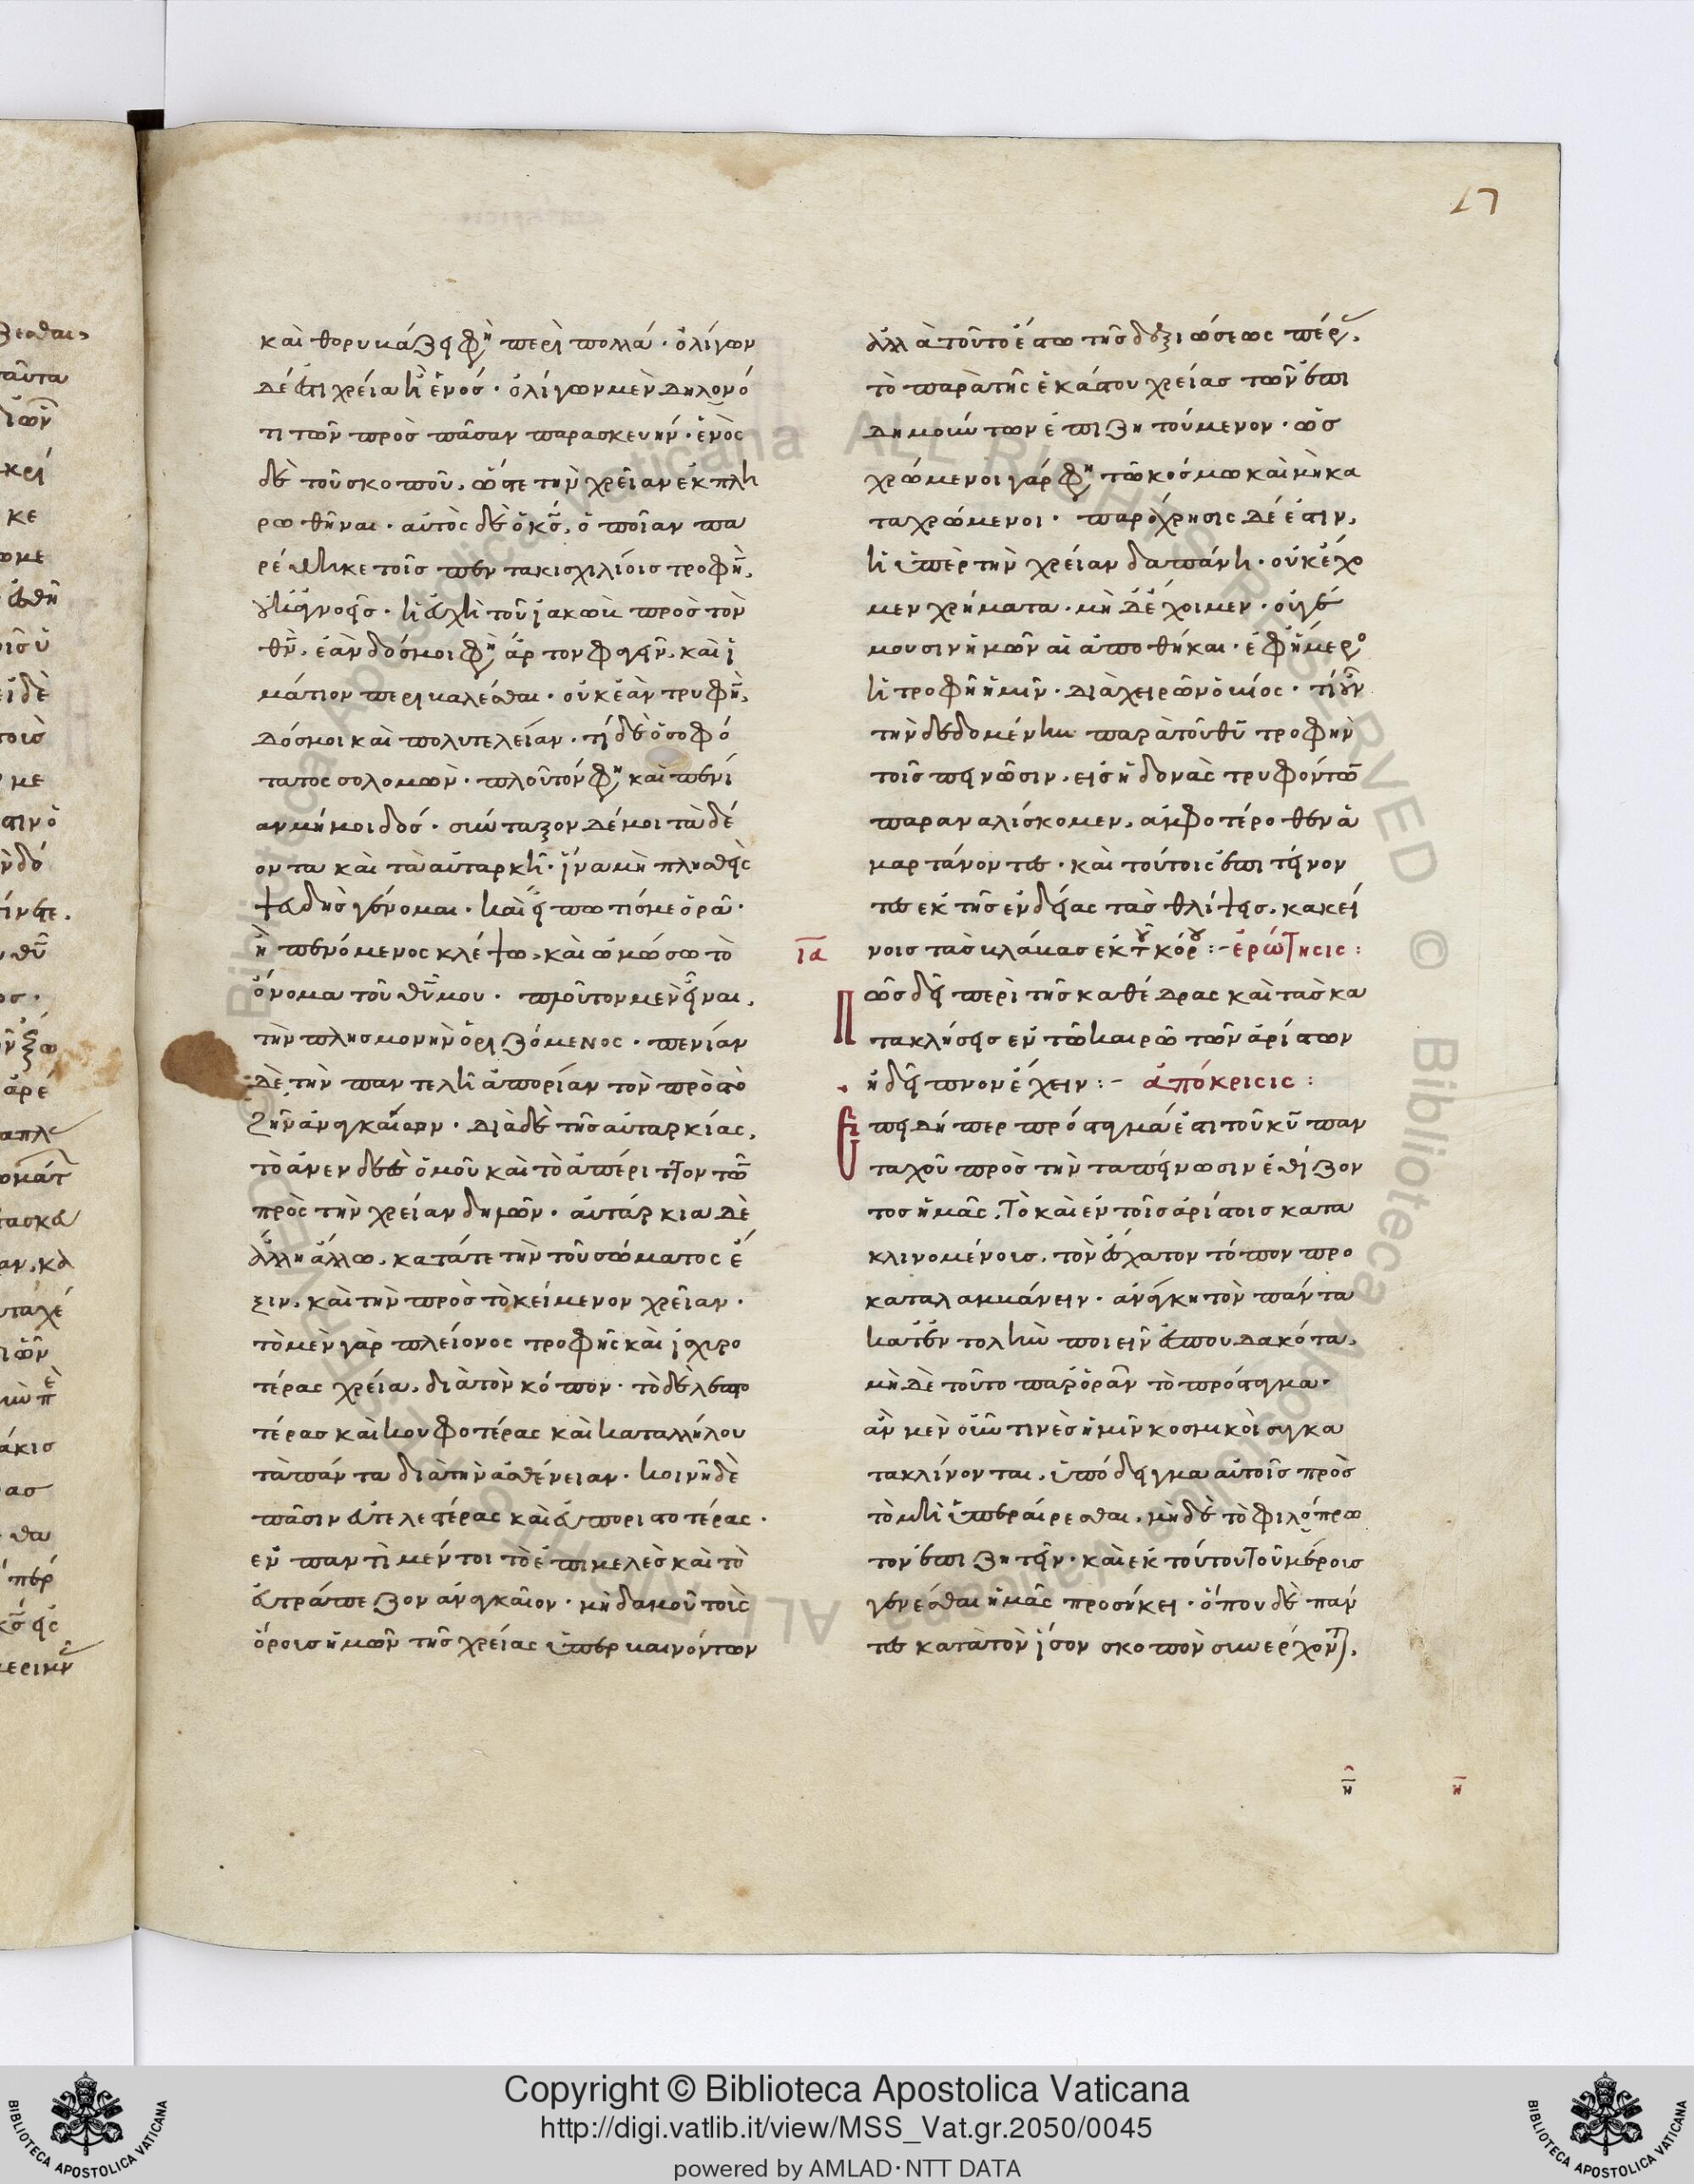 καὶ θορυβάζῃ φη περὶ πολλά· ὀλίγων
δέ ἐστι χρεία ἢ ἑνός· ὀλίγων μὲν δηλονό
τι τῶν πρὸς πᾶσαν παρασκευήν· ἑνὸς
δὲ τοῦ σκοποῦ, ὥστε τὴν χρεῖαν ἐκπλη
ρωθῆναι· αὐτὸς δὲ ὁ κς̅, ὁποῖαν πα
ρέθηκε τοῖς πεντακισχιλίοις τροφὴν,
ἀγνοεῖς· ἡ εὐχὴ τοῦ ἰακὼβ πρὸς τὸν
θν̅, ἐὰν δός μοι φη ἄρτον φαγεῖν, καὶ ἱ
μάτιον περιβαλέσθαι· οὐκ ἐὰν τρυφὴν,
δόσμοι καὶ πολυτελείαν· τί δὲ ὁ σοφό
τατος σολομὼν· πλοῦτόν φη καὶ πενί
αν μή μοι δός· σύνταξον δέ μοι τὰ δέ
οντα καὶ τὰ αὐταρκῆ· ἵνα μὴ πλησθεὶς
ψευδὴς γένομαι· καὶ εἴπω τίς με ὁρᾶ·
ἢ πενόμενος κλέψω, καὶ ὠμώσω τὸ
ὄνομα τοῦ θυ̅ μου· πλοῦτον μὲν εἶναι,
τὴν πλησμονὴν ὁριζόμενος· πενίαν
δὲ, τὴν παντελῆ ἀπορίαν τὸν πρὸς τὸ
ζῆν ἀναγκαίων· διὰ δὲ τῆς αὐταρκίας,
τὸ ἀνενδεὲς ὁμοῦ καὶ τὸ ἀπέριττον τῶν
πρὸς τὴν χρείαν δηλῶν· αὐτάρκια δὲ
ἄλλη ἄλλω, κατά τε τὴν τοῦ σώματος ἕ
ξιν, καὶ τὴν πρὸς τὸ κείμενον χρεῖαν·
τὸ μὲν γὰρ πλείονος τροφῆς καὶ ἰσχυρο
τέρας χρεία, διὰ τὸν κόπον· τὸ δὲ λεπτο
τέρας καὶ κουφοτέρας καὶ καταλλήλου
τὰ πάντα διὰ τὴν ἀσθένειαν· κοινῆ δὲ
πᾶσιν εὐτελεστέρας καὶ εὐποριστοτέρας·
ἐν παντὶ μέντοι τὸ ἐπιμελὲς καὶ τὸ
εὐτράπεζον ἀναγκαῖον· μηδαμοῦ τοῖς
ὅροις ἡμῶν τῆς χρείας ὑπερβαινόντων
ἀλλὰ τοῦτο ἔστω τῆς δεξιώσεως πέρ,
τὸ παρὰ τῆς ἑκάστου χρείας τῶν ἐπι
δημούντων ἐπιζητούμενον· ὡς
χρώμενοι γάρ φη τῶ κόσμω καὶ μὴ κα
ταχρώμενοι· παράχρησις δέ ἐστιν,
ἡ ὑπὲρ τὴν χρείαν δαπάνη· οὐκ ἔχο
μεν χρήματα· μὴ δὲ ἔχοιμεν· οὐ γέ
μουσιν ἡμῶν αἱ ἀποθήκαι· ἐφήμερο
ἡ τροφὴ ἡμῖν· διὰ χειρῶν ὁ βίος· τί οὖν
τὴν δεδομένην παρὰ τοῦ θυ̅ τροφὴν
τοῖς πεινῶσιν, εἰς ἡδονὰς τρυφόντων
παραναλίσκομεν, ἀμφοτέροθεν ἁ
μαρτάνοντες· καὶ τούτοις ἐπιτείνον
τες ἐκ τῆς ἐνδείας τὰς θλίψεις, κακεί
ια̅ νοις τὰς βλάβας ἐκ τοῦ κόρου:- ἐρώτησις:
Πῶς δεῖ περὶ τῆς καθέδρας καὶ τὰς κα
τακλήσεις ἐν τῶ καιρῶ τῶν ἀρίστων
ἢ δείπνον ἔχειν:- ἀπόκρισις:
Επειδήπερ πρόσταγμά ἐστι τοῦ κυ̅ παν
ταχοῦ πρὸς τὴν ταπείνωσιν ἐθίζον
τος ἡμᾶς, Τὸ καὶ ἐν τοῖς ἀρίστοις κατα
κλινομένοις, τὸν ἔσχατον τόπον προ
καταλαμβάνειν· ἀνάγκη τὸν πάντα
κατ' ἐντολὴν ποιεῖν ἐσπουδακότα,
μὴ δὲ τοῦτο παρορᾶν τὸ πρόσταγμα·
ἂν μὲν οὖν τινὲς ἡμῖν κοσμικοὶ συγκα
τακλίνονται, ὑπόδειγμα αὐτοῖς πρὸς
τὸ μὴ ὑπεραίρεσθαι, μὴ δὲ τὸ φιλόπρω
τον ἐπιζητεῖν· καὶ ἐκ τούτου τοῦ μέροις
γενέσθαι ἡμᾶς προσήκει· ὅπου δὲ πάν
τες κατὰ τὸν ἴσον σκοπὸν συνερχον,
η̅ η̅
17
Copyright © Biblioteca Apostolica Vaticana
http://digi.vatlib.it/view/MSS_Vat.gr.2050/0045
powered by AMLAD·NTT DATA